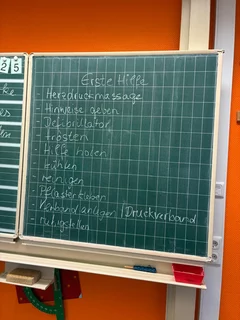 Erste Hilfe
- Herzdruckmassage
- Hinweise geben
- Defibrillator
- trösten
- Hilfe holen
- kühlen
- reinigen
- Pflaster kleben
- Verband anlegen / Druckverband
- ruhigstellen
25